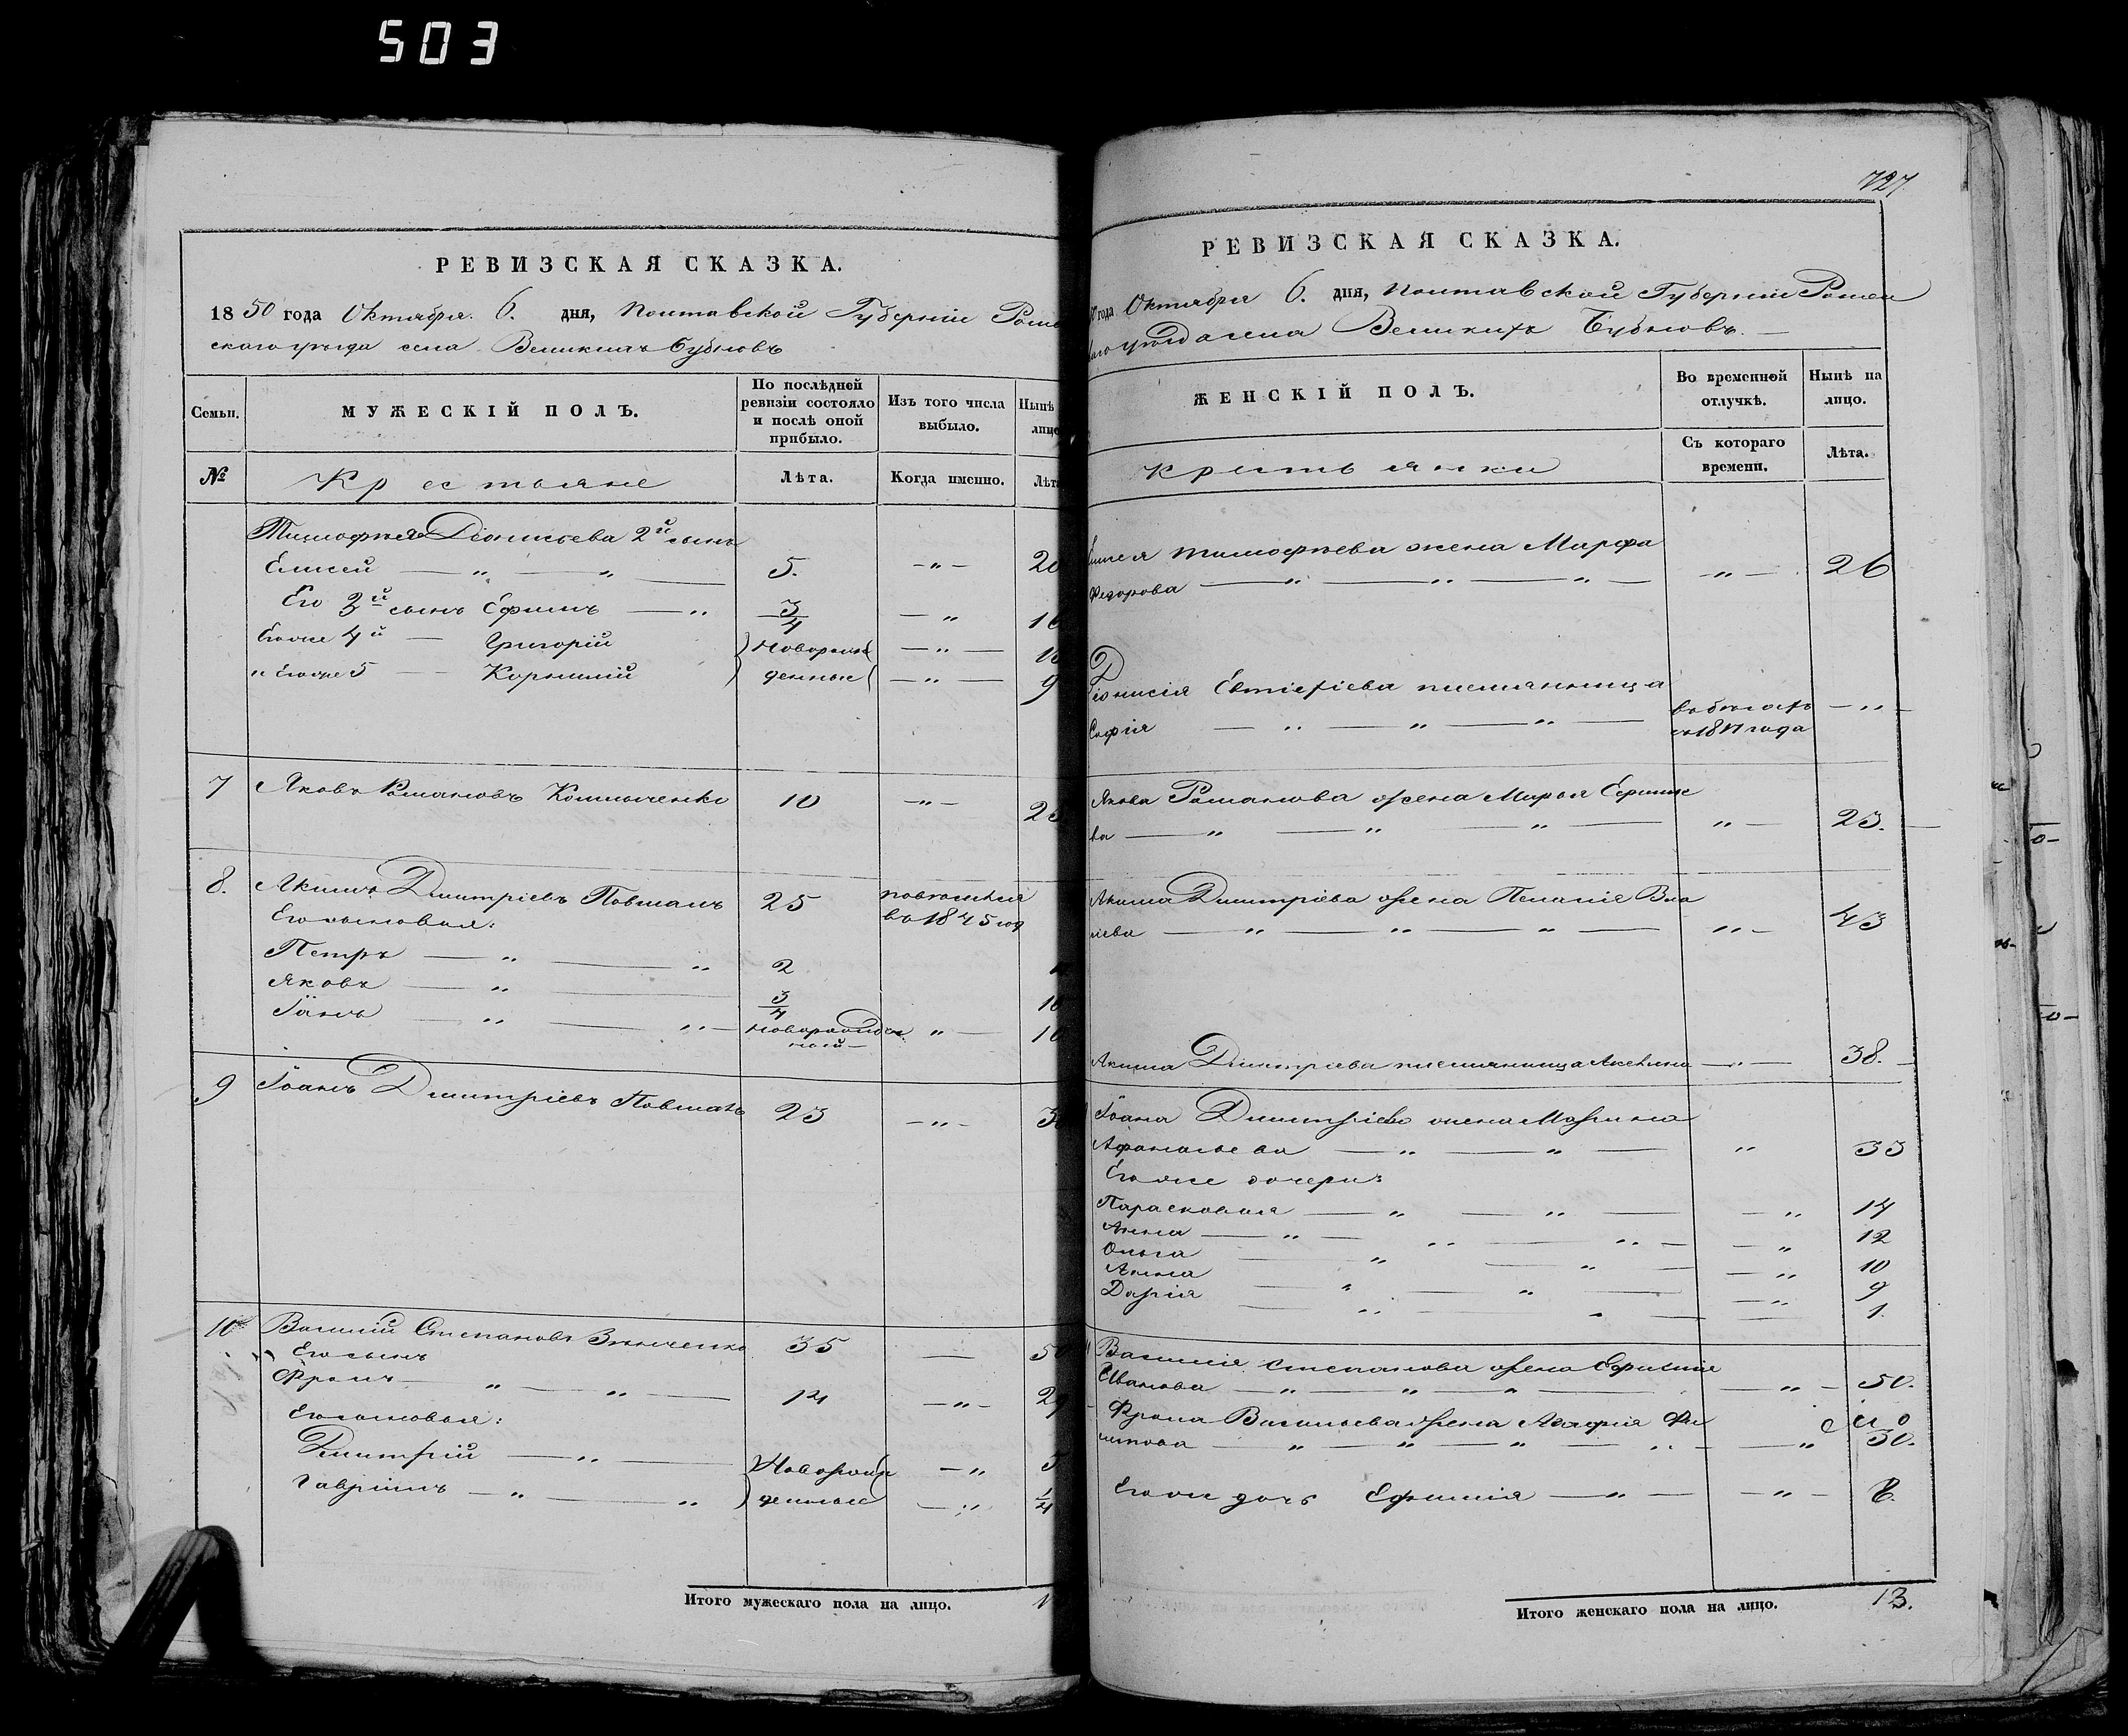 503
РЕВИЗСКАЯ СКАЗКА.
1850 года Октября 6. дня, Полтавской Губерніи Роме
скаго уѣзда села Великихъ Бубновъ
Семьи.
МУЖЕСКІЙ ПОЛЪ.
По послѣдней ревизіи состояло и послѣ оной прибыло.
Изъ того числа выбыло.
Нынѣ лицо
№
Крестьяне
Лѣта.
Когда именно.
Лѣта
Тимофѣя Діонисьева 2й сынъ
Елисей — " — " — 5. — " — 20
Его 3й сынъ Ефимъ — " 3/4 — "
Егоже 4й — Григорій Новорож — " —
и Егоже 5 — Корнилій денные — " — 9
7 Яковъ Романовъ 10 — " —
8. Акимъ Дмитріевъ Повшанъ 25
Его сыновья: въ 1845 год
Петръ — " — " 2
Яковъ — " — 3/4
Іванъ — " — " — новорожден " —
ный —
9 Іоанъ Дмитріевъ Повшанъ 23 — " —
10 Василій Степановъ Зѣнченко 35 — 50
Его сынъ
Фролъ — " — " — 14 — " — 29
Его сыновья:
Дмитрій — " — Новорож — " 5
Гавріилъ — " — " денные — " 1/4
Итого мужескаго пола на лицо.
727
РЕВИЗСКАЯ СКАЗКА.
года Октября 6. дня, Полтавской Губерніи Ромен
уѣзда села Великихъ Бубновъ. —
ЖЕНСКІЙ ПОЛЪ.
Во временной отлучкѣ.
Нынѣ на лицо.
Крестьянки
Съ котораго времени.
Лѣта.
Елисея Тимофѣева жена Марфа
Федорова — " — " — " — — " — 26
Діонисія Евтіѣіева племянница
Софія — " — " — " — въ бѣгахъ — " —
года
Якова Романова жена Марья Ефимо
ва — " — " — " — " — 23.
Акима Дмитріева жена Пелагія Вла
сіева — " — " — " — " — 43
Акима Дмитріева племянница Акелина — " — 38.
Іоана Дмитріева жена Марина
Афанасьева — " — " — " 33
Его же дочери:
Парасковія — " — " — — " 14
Анна — " — " — " — — " 12
Ольга — " — " — — " 10
Анна — " — " — — " 9
Дарія — " — " — 1.
Василія Степанова жена Ефимія
Иванова — " — " — " — — " — 50.
Фрола Васильева жена Агафія Фи
липова — " — " — " — " — " 30.
Его же дочь Ефимія — " — — " — 8.
Итого женскаго пола на лицо. 13.